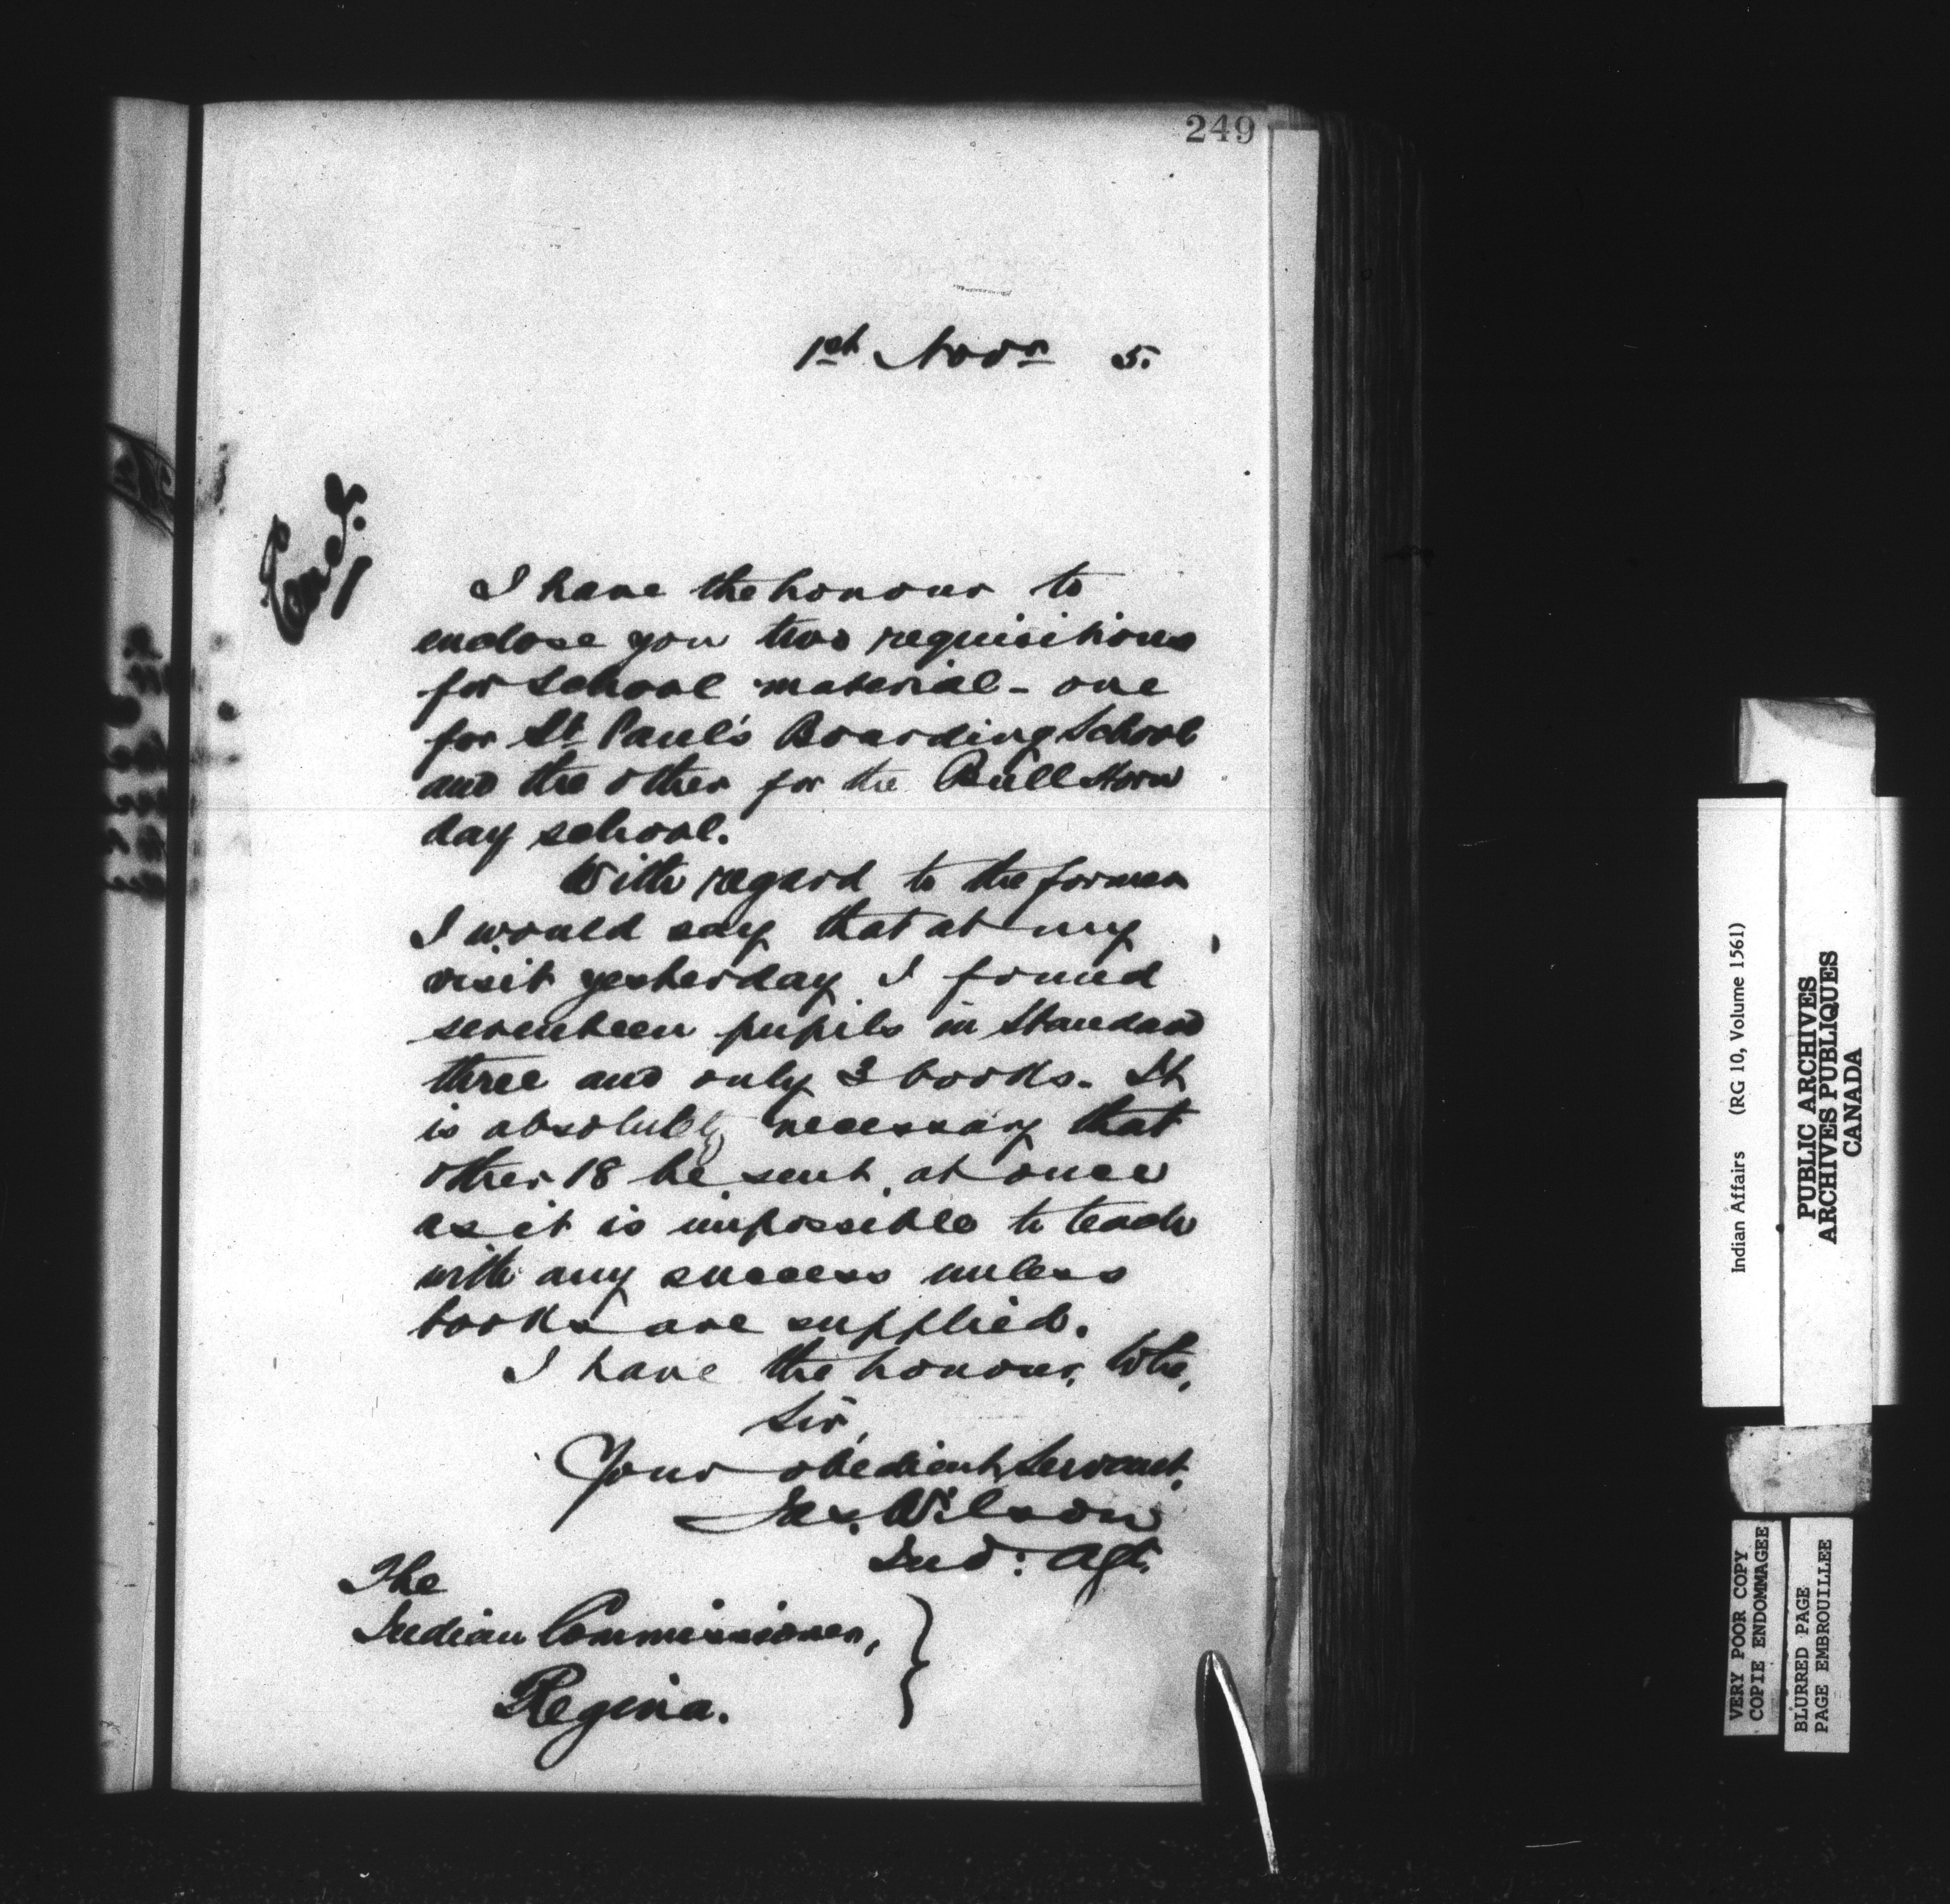 249
1st Novr 5.
Encs.
I have the honour to
enclose you two requisitions
for school material - one
for St Paul's Boarding School
and the other for the Bull Horn
day school.
With regard to the former
I would say that at my
visit yesterday I found
seventeen pupils in Standard
three and only 3 books. It
is absolutely necessary that
other 18 be sent at once
as it is impossible to teach
with any success unless
books are supplied.
I have the honour to be,
Sir,
Your obedient Servant,
Jas. Wilson
Ind: Agt.
The
Indian Commissioner,
Regina.
Indian Affairs (RG 10, Volume 1561)
PUBLIC ARCHIVES
ARCHIVES PUBLIQUES
CANADA
VERY POOR COPY
COPIE ENDOMMAGEE
BLURRED PAGE
PAGE EMBROUILLEE